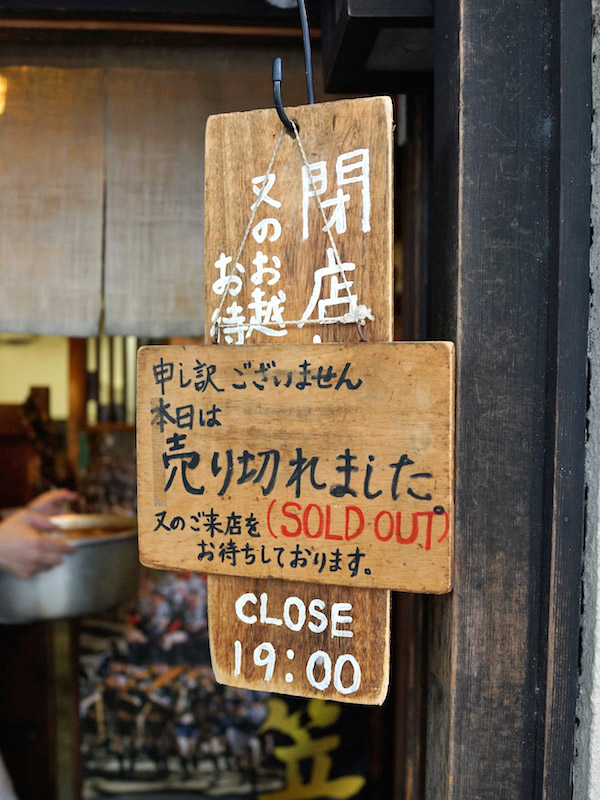 閉店
又のお越
お待
申し訳ございません
本日は
売り切れました。
又のご来店を(SOLD OUT)
お待ちしております。
CLOSE
19:00
笠